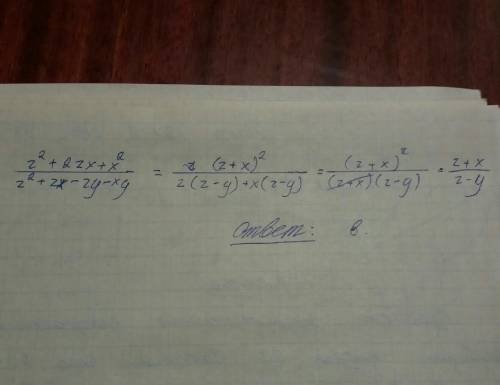 (z² + 2zx + x²)/(z² + zx - zy - xy) = (z+x)²/(z(z-y)+x(z-y)) = (z+x)²/((z+x)(z-y)) = (z+x)/(z-y)
Ответ: в.